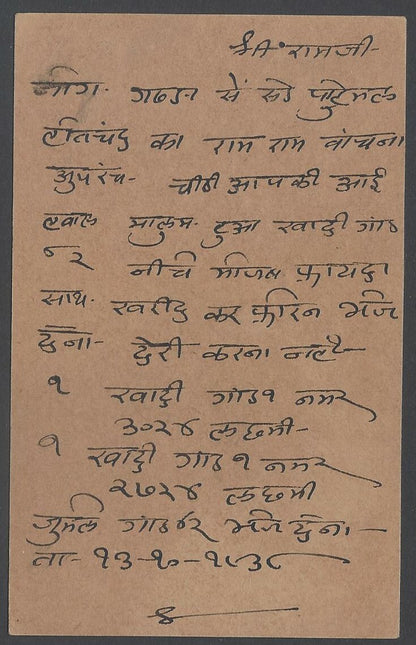 श्री रामजी-
जोग- गढडा से सेठ पाटेमल
हीतचंद का राम राम वांचना
अुपरंच- चीठी आपकी आई
हवाल मालुम- हुआ खादी गांठ
२ नीचे मीजब फ़ायदा
साथ- खरीद कर फ़ौरन भेज
देना- देरी करना नहीं-
१ खादी गांठ १ नमर
३०२४ लछमी-
१ खादी गांठ १ नमर
२७२४ लछमी
जुमले गांठ २ भेज देना-
ता- १३-१०-१९३८